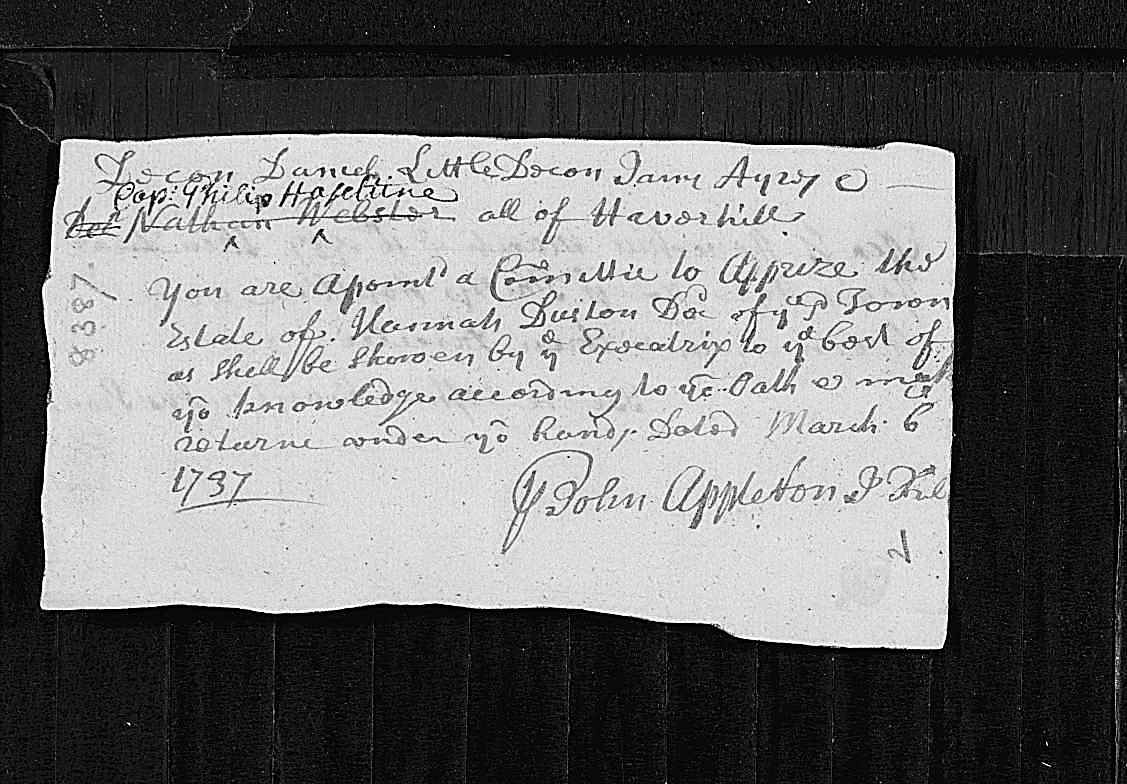 Decon Daniel Little Decon Jams Ayres &
Cap: Philip Haseltine
Nathan Webster all of Haverhill
You are Apoint'd a Comittie to Apprize the
Estate of Hannah Duston Dec of ye sd Town
as Shall be Showen by ye Execatrix to ye best of
yo knowledge according to ye Oath & make
returne under yo hands Dated March 6
1737
John Appleton J Prob
8387